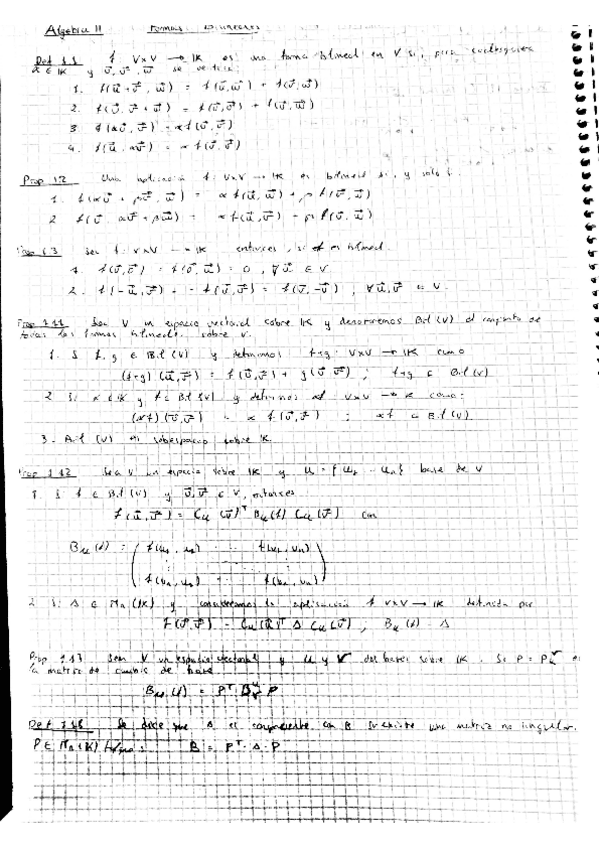 Algebra II Formas Bilineales
Def 1.1 f VxV → IK es una forma bilineal en V si, para cualesquiera
α ∈ IK y ū, v̄, w̄ se verifica:
1. f(ū+v̄, w̄) = f(ū,w̄) + f(v̄,w̄)
2. f(ū, v̄+w̄) = f(ū,v̄) + f(ū,w̄)
3 f(αū, v̄) = αf(ū,v̄)
4. f(ū, αv̄) = αf(ū,v̄)
Prop 1.2 Una aplicación f: VxV → IK es bilineal si, y solo si:
1. f(αū + βv̄, w̄) = αf(ū,w̄) + βf(v̄,w̄)
2 f(ū, αv̄ + βw̄) = αf(ū,v̄) + βf(ū,w̄)
Prop 1.3 Sea f: VxV → IK entonces, si f es bilineal
1. f(ū,ō) = f(ō,ū) = 0, ∀ū ∈ V.
2. f(-ū,v̄) = -f(ū,v̄) = f(ū,-v̄) ; ∀ū,v̄ ∈ V.
Prop 1.11 Sea V un espacio vectorial sobre IK y denotaremos Bil(V) el conjunto de
todas las formas bilineales sobre V.
1. Si f, g ∈ Bil(V) y definimos f+g: VxV → IK como
(f+g)(ū,v̄) = f(ū,v̄) + g(ū,v̄) ; f+g ∈ Bil(V)
2 Si α ∈ IK y f ∈ Bil(V) y definimos αf VxV → IK como:
(αf)(ū,v̄) = αf(ū,v̄) ; αf ∈ Bil(V)
3. Bil(V) es subespacio sobre IK
Prop 1.12 Sea V un espacio sobre IK y U = {u₁ ... uₙ} base de V
1. Si f ∈ Bil(V) y ū,v̄ ∈ V, entonces
f(ū,v̄) = C_U(ū)ᵀ B_U(f) C_U(v̄) con
B_U(f) = ( f(u₁,u₁) ... f(u₁,uₙ)
f(uₙ,u₁) ... f(uₙ,uₙ) )
2 Si A ∈ Mₙ(IK) y consideramos la aplicación f VxV → IK definida por
f(ū,v̄) = C_U(ū)ᵀ A C_U(v̄) ; B_U(f) = A
Prop 1.13 Sea V un espacio vectorial y U y V dos bases sobre IK. Si P = P es
la matriz de cambio de base
B_U(f) = Pᵀ B P
Def Se dice que A es congruente con B si existe una matriz no singular
P ∈ Mₙ(IK) B = Pᵀ · A · P